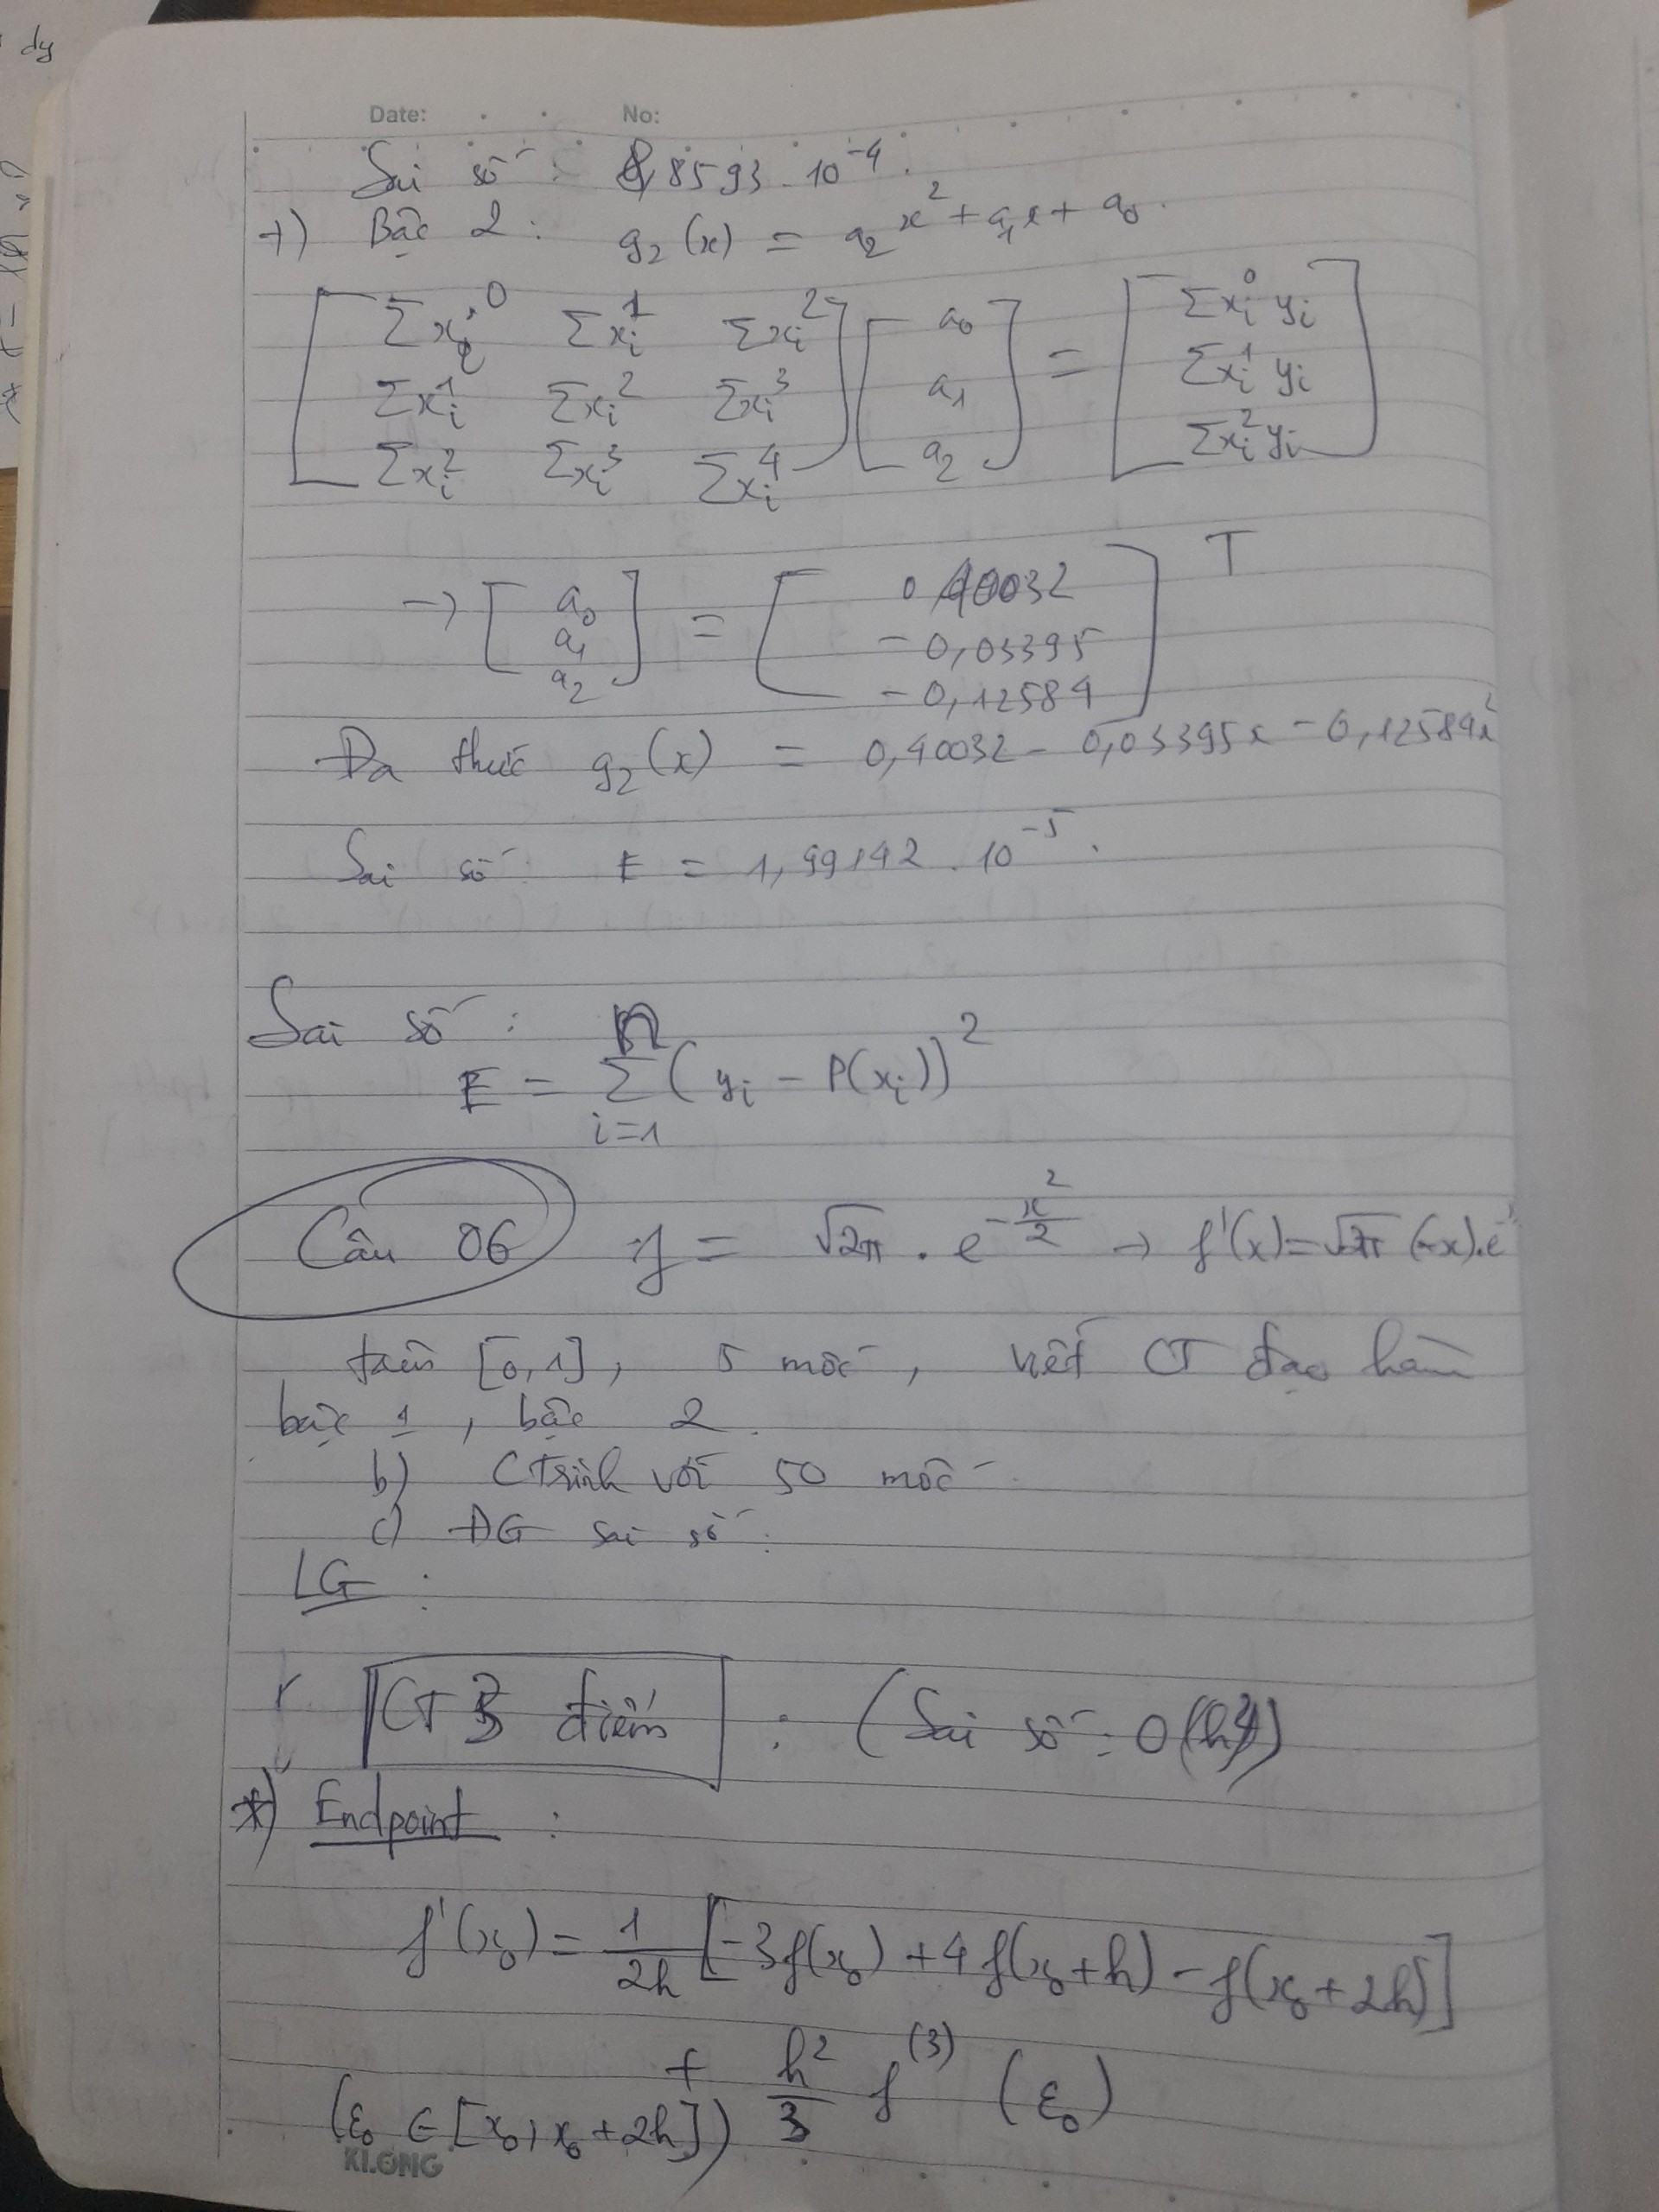 dy
Date: No:
Sai số: 8,8593.10^-4.
+) Bậc 2: g₂(x) = a₂x² + a₁x + a₀.
[ Σxᵢ⁰ Σxᵢ¹ Σxᵢ² ] [ a₀ ] = [ Σxᵢ⁰yᵢ ]
[ Σxᵢ¹ Σxᵢ² Σxᵢ³ ] [ a₁ ] [ Σxᵢ¹yᵢ ]
[ Σxᵢ² Σxᵢ³ Σxᵢ⁴ ] [ a₂ ] [ Σxᵢ²yᵢ ]
→ [ a₀ ] = [ 0,40032 ] T
[ a₁ ] [ -0,03395 ]
[ a₂ ] [ -0,12584 ]
Đa thức g₂(x) = 0,40032 - 0,03395x - 0,12584x²
Sai số: E = 1,99142.10^-5.
Sai số:
E = Σ_{i=1}^{n} (yᵢ - P(xᵢ))²
Câu 06 y = √2π . e^{-x²/2} → f'(x) = √2π (-x).e
trên [0,1], 5 mốc, viết CT đạo hàm
bậc 1, bậc 2.
b) CTrình với 50 mốc.
c) ĐG sai số.
LG:
CT 3 điểm : (Sai số: O(h²))
*) Endpoint:
f'(x₀) = 1/2h [-3f(x₀) + 4f(x₀+h) - f(x₀+2h)]
+ h²/3 f^(3) (ε₀)
(ε₀ ∈ [x₀, x₀+2h])
KLONG